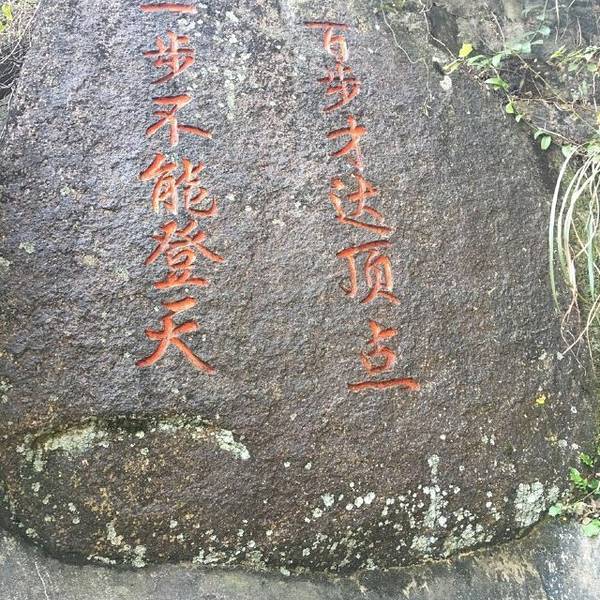 一步不能登天
百步才达顶点